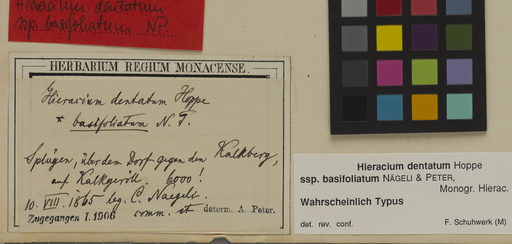 Hieracium dentatum
ssp. basifoliatum NP.
HERBARIUM REGIUM MONACENSE.
Hieracium dentatum Hoppe
* basifoliatum N. P.
Splügen, über dem Dorf gegen den Kalkberg,
auf Kalkgeröll. 6000!
10. VIII. 1865 leg. C. Naegeli.
Zugegangen I. 1906 comm. et determ. A. Peter.
Hieracium dentatum Hoppe
ssp. basifoliatum NÄGELI & PETER,
Monogr. Hierac.
Wahrscheinlich Typus
det. rev. conf. F. Schuhwerk (M)